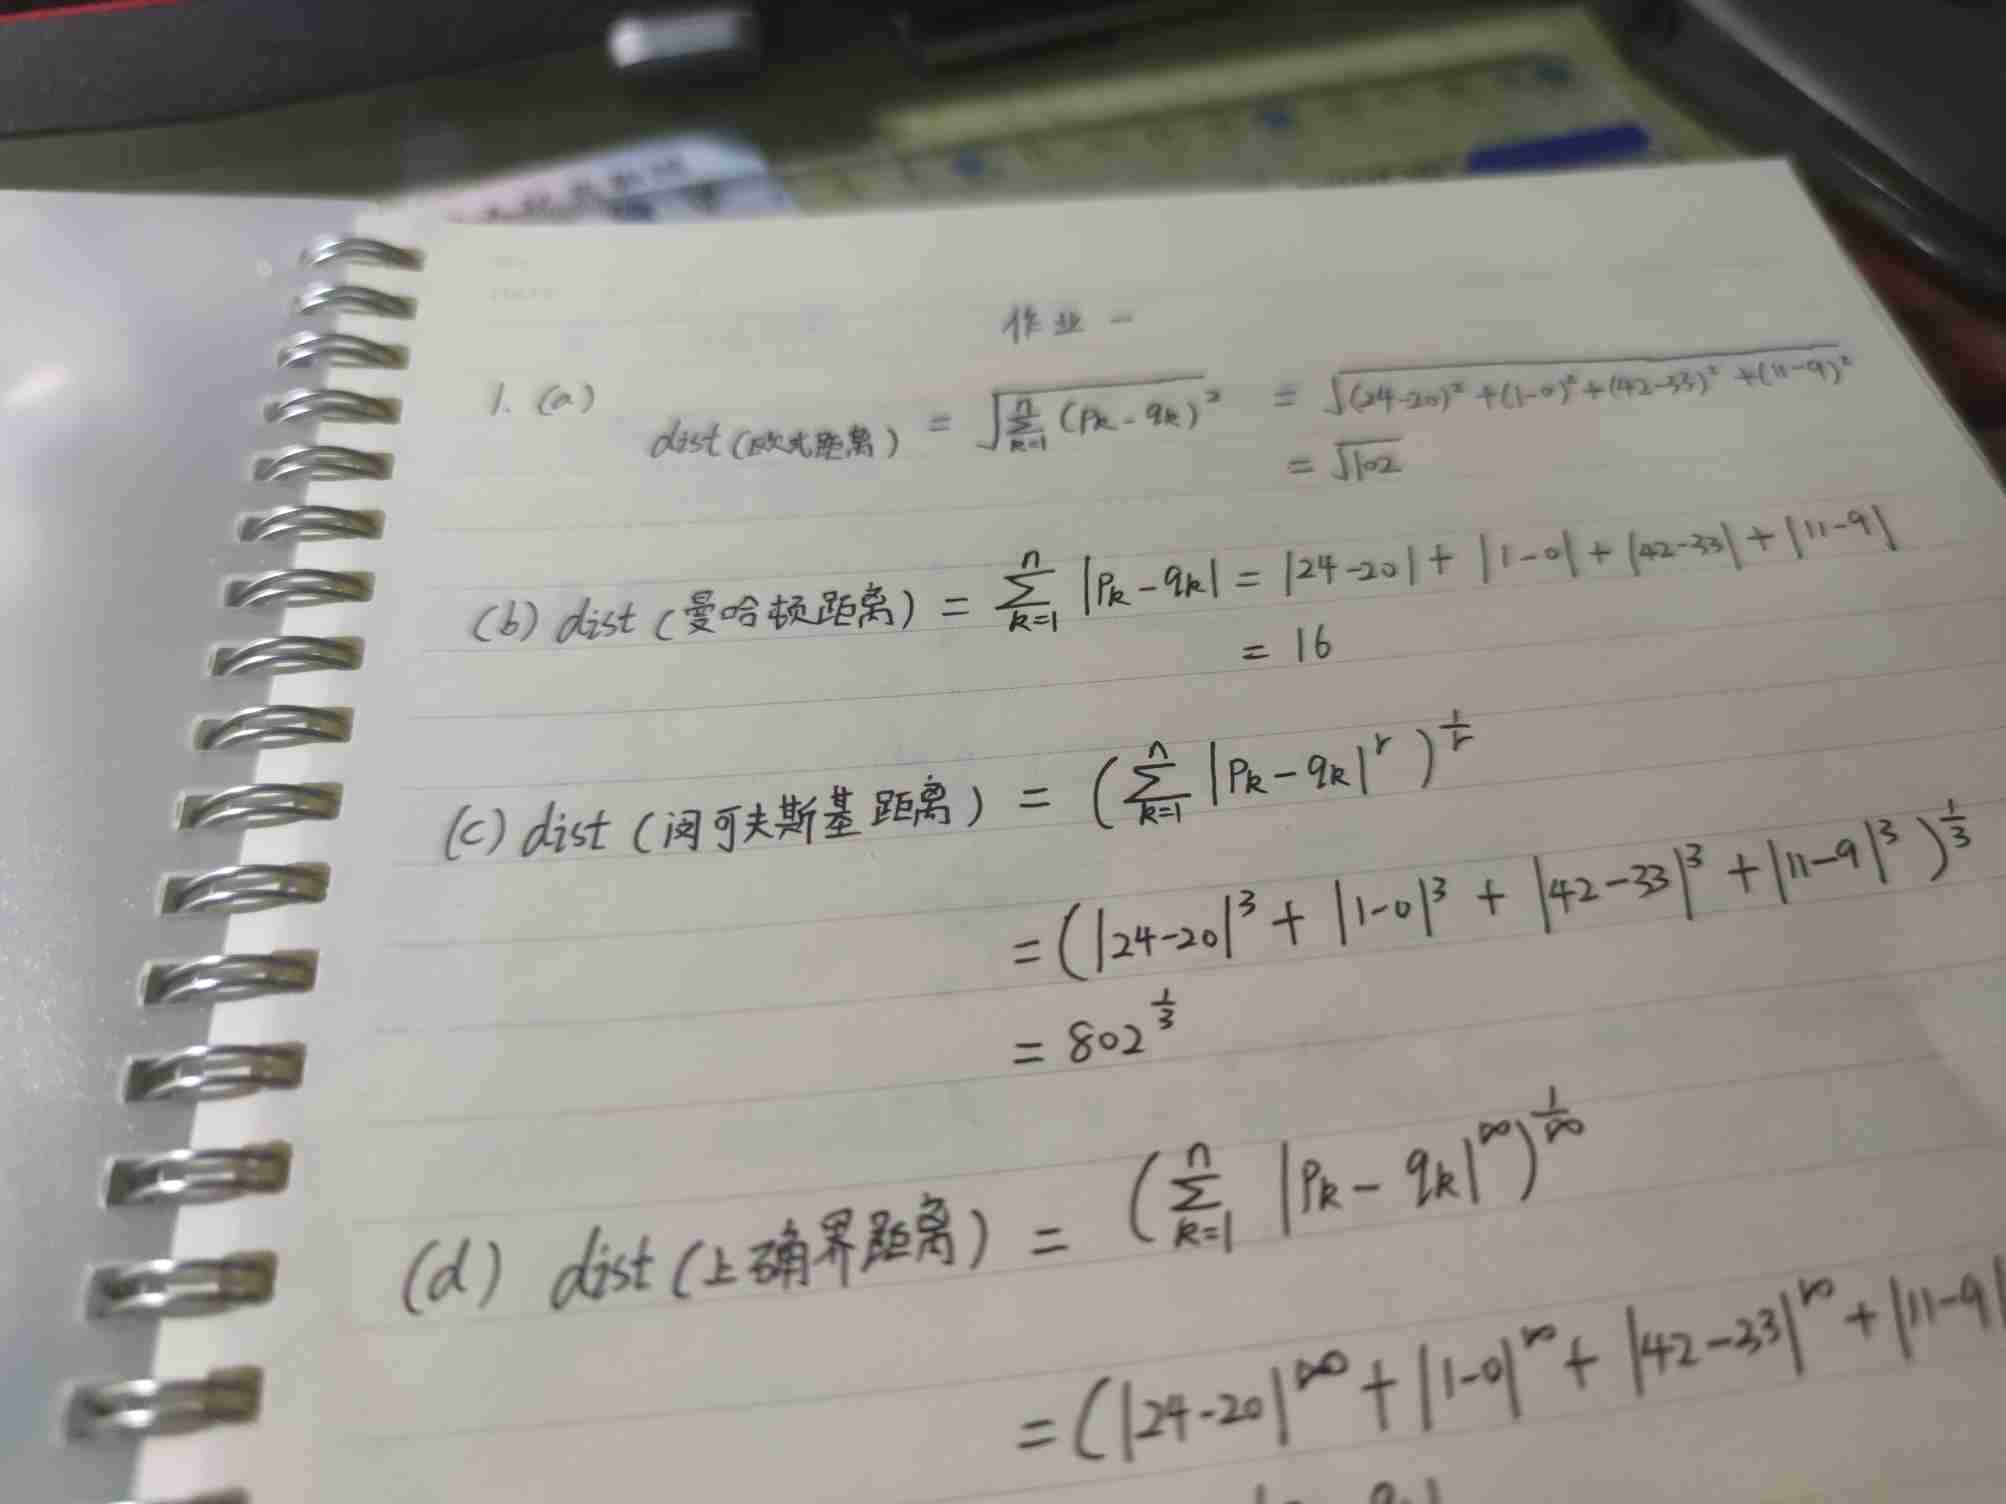 作业一
1. (a) dist (欧式距离) = √(∑_{k=1}^{n} (Pk - qk)²) = √((24-20)² + (1-0)² + (42-33)² + (11-9)²)
= √102
(b) dist (曼哈顿距离) = ∑_{k=1}^{n} |Pk - qk| = |24-20| + |1-0| + |42-33| + |11-9|
= 16
(c) dist (闵可夫斯基距离) = (∑_{k=1}^{n} |Pk - qk|^r)^{1/r}
= (|24-20|³ + |1-0|³ + |42-33|³ + |11-9|³)^{1/3}
= 802^{1/3}
(d) dist (上确界距离) = (∑_{k=1}^{n} |Pk - qk|^∞)^{1/∞}
= (|24-20|^∞ + |1-0|^∞ + |42-33|^∞ + |11-9|